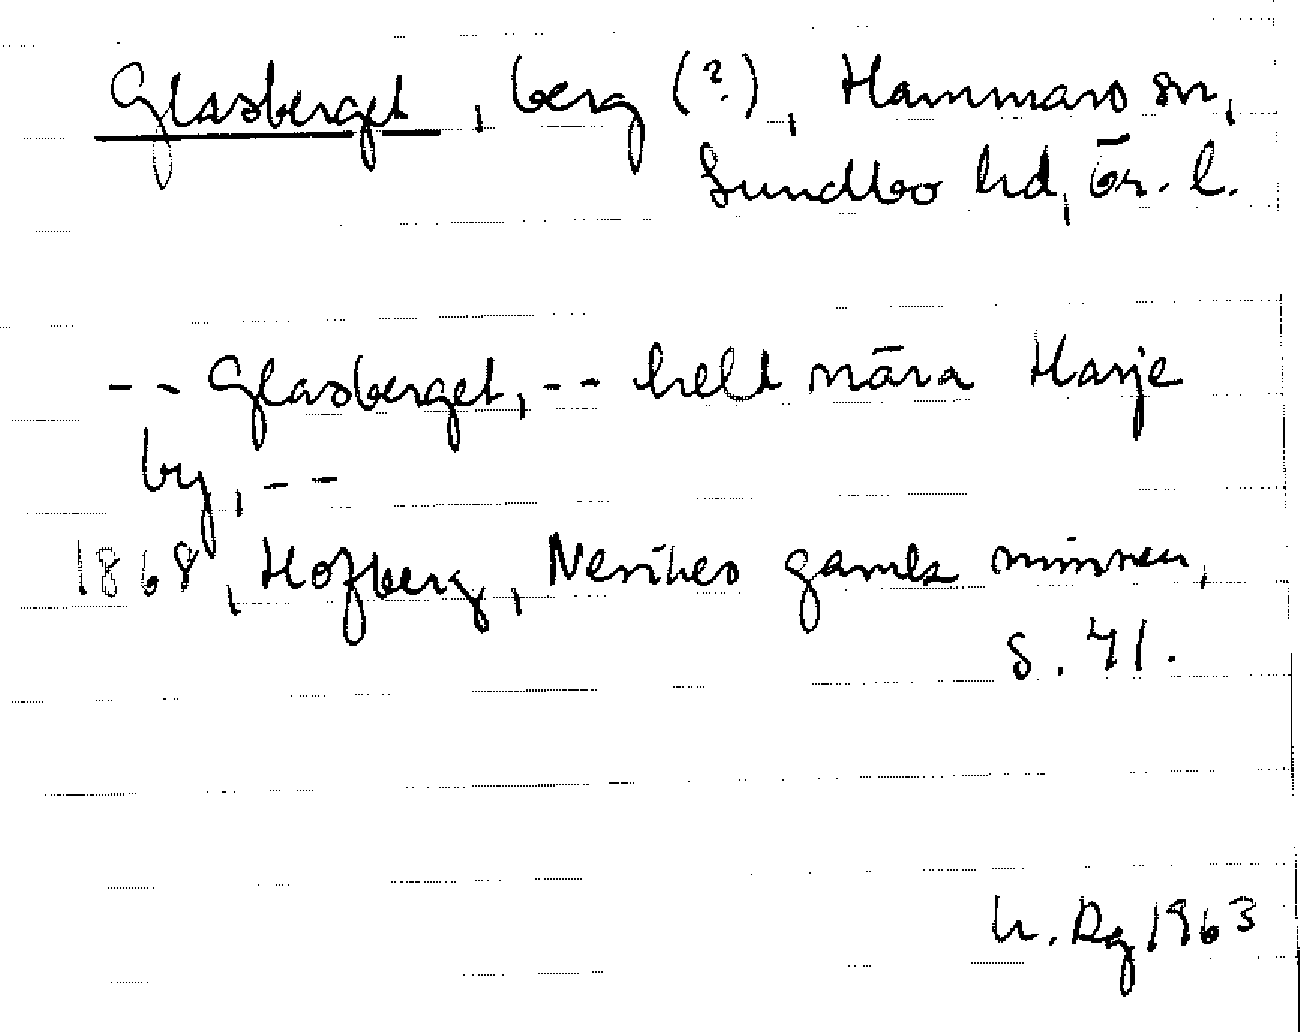 Glasberget, berg (?), Hammars sn,
Sundbo hd, Ör. l.
-- Glasberget, -- helt nära Harje
by, --
1868, Hofberg, Nerikes gamla minnen,
s. 41.
h. Dg 1963